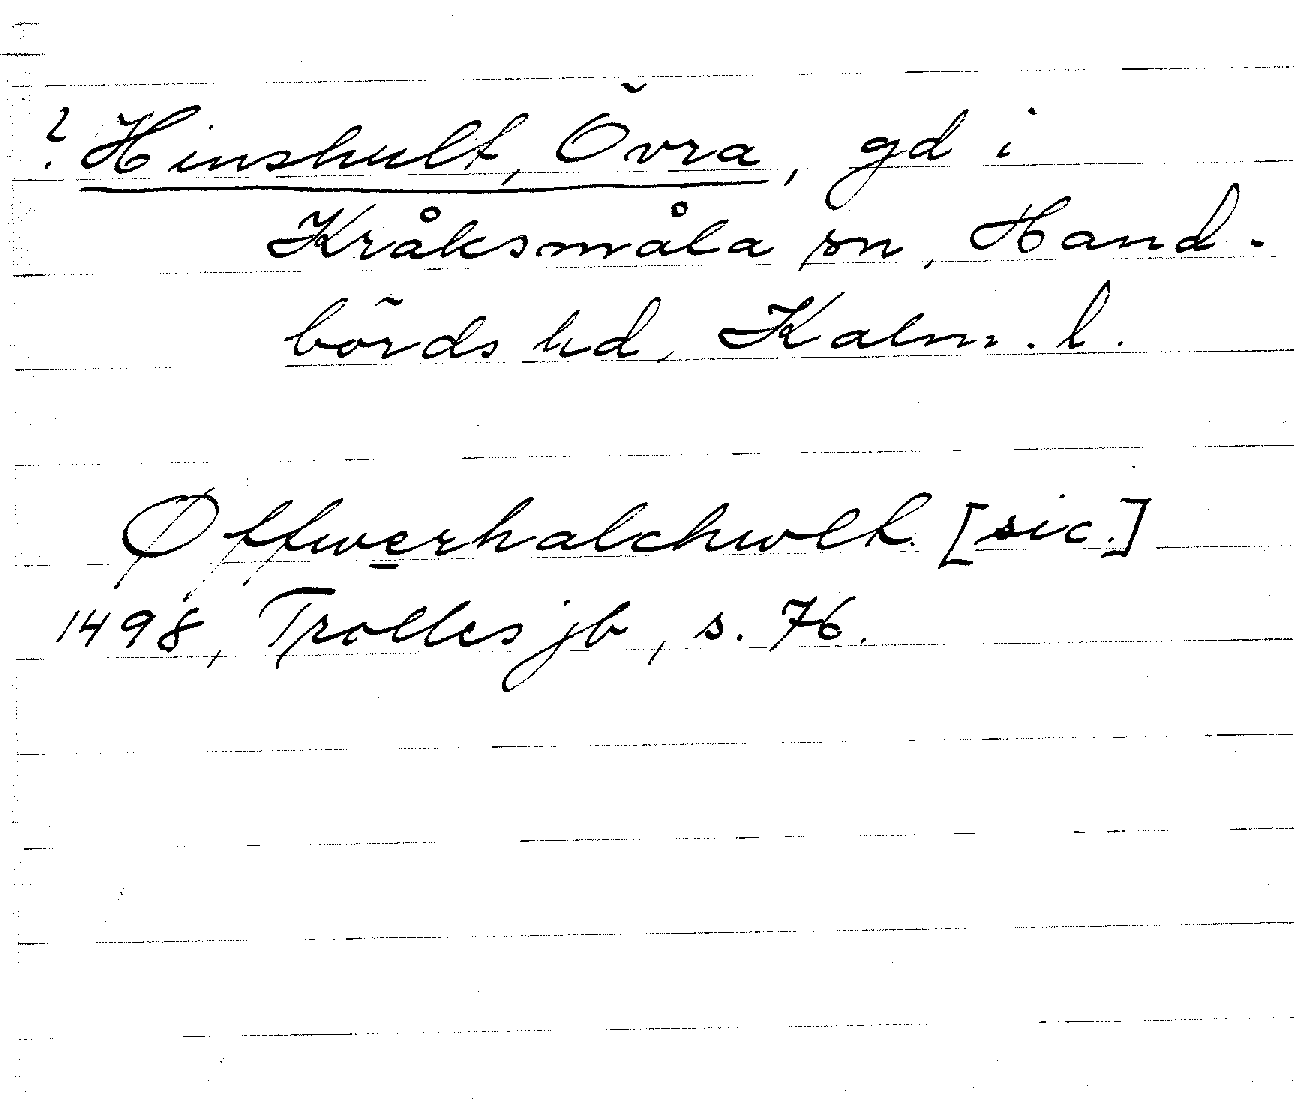 ? Hinshult, Övra, gd i
Kråksmåla sn, Hand-
börds hd, Kalm. l.
Øffwerhalchwlt [sic.]
1498, Trolles jb, s. 76.